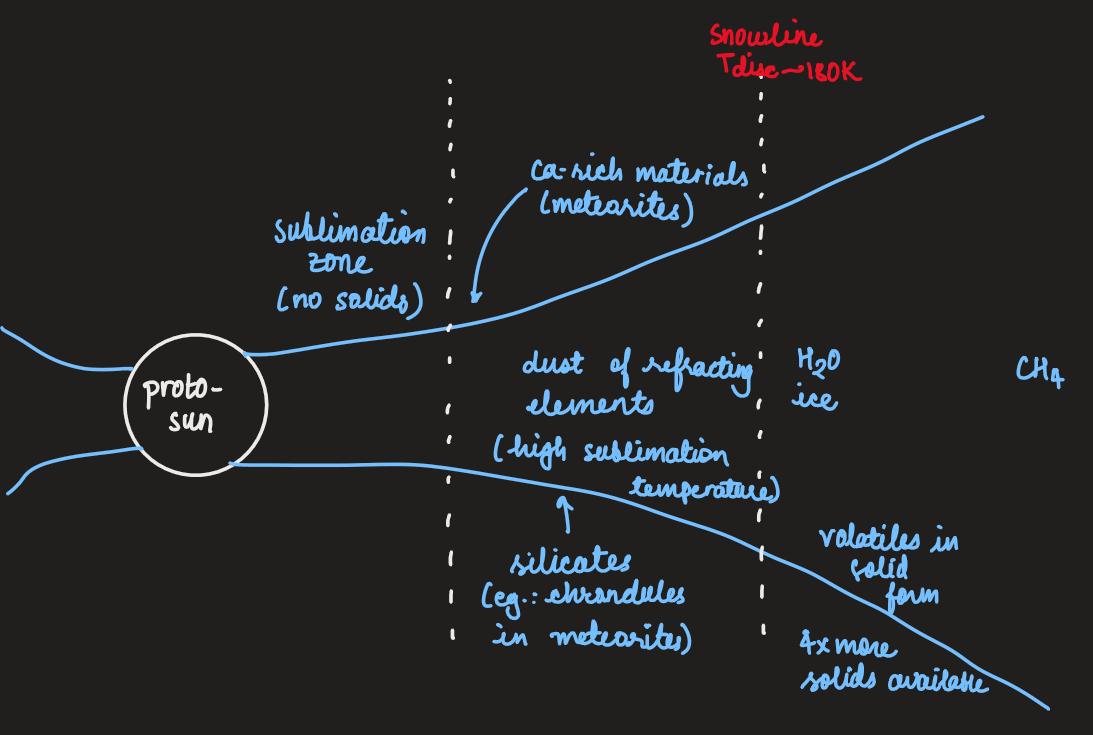 Snowline
Tdisc ~ 180K
Ca-rich materials
(meteorites)
sublimation
zone
(no solids)
proto-
sun
dust of refracting
elements
(high sublimation
temperature)
H₂O
ice
CH₄
silicates
(eg.: chrondules
in meteorites)
volatiles in
solid
form
4x more
solids available